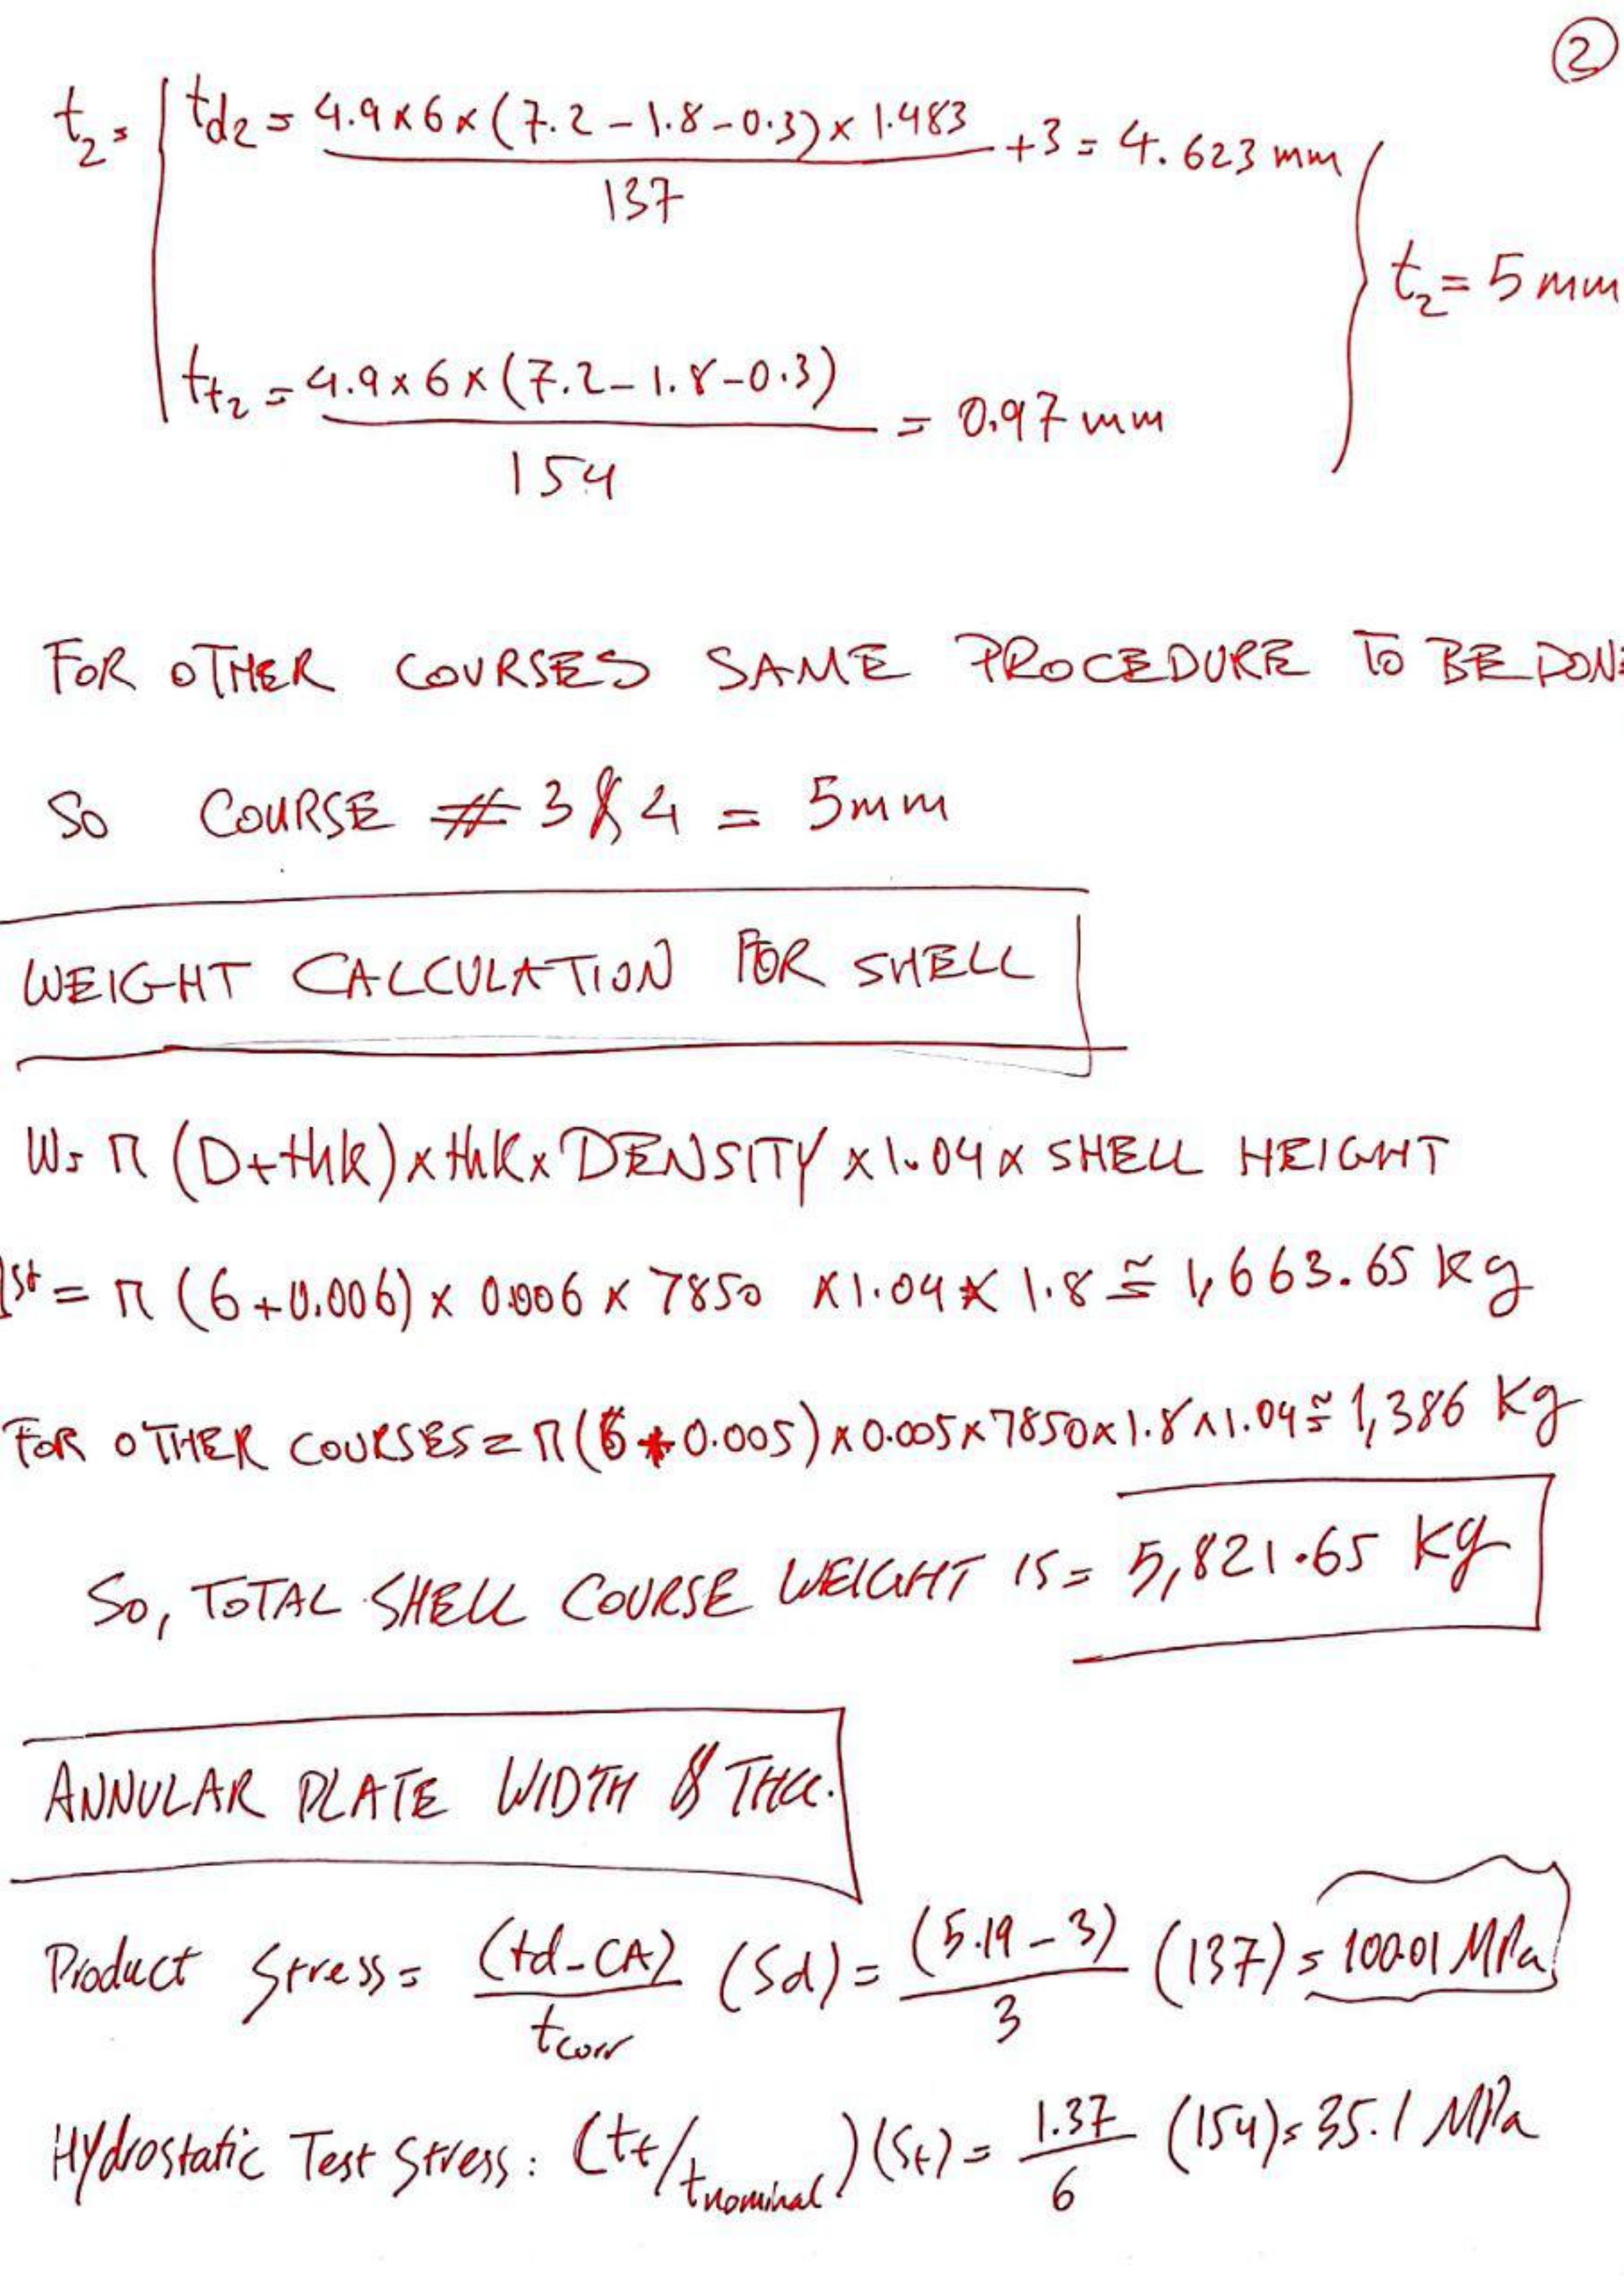 2
t₂ = td₂ = 4.9x6x(7.2-1.8-0.3)x1.483 / 137 +3 = 4.623 mm
t₂ = 5 mm
tt₂ = 4.9x6x(7.2-1.8-0.3) / 154 = 0.97 mm
FOR OTHER COURSES SAME PROCEDURE TO BE DON
SO COURSE # 3 & 4 = 5mm
WEIGHT CALCULATION FOR SHELL
W= π (D+thk)xthkxDENSITYx1.04x SHELL HEIGHT
1st = π (6+0.006) x 0.006 x 7850 x1.04x 1.8 ≅ 1,663.65 kg
FOR OTHER COURSES = π(6+0.005)x0.005x7850x1.8x1.04≅ 1,386 Kg
So, TOTAL SHELL COURSE WEIGHT IS= 5,821.65 Kg
ANNULAR PLATE WIDTH & THK.
Product Stress = (td-CA) / tcorr (Sd) = (5.19-3) / 3 (137) = 100.01 MPa
Hydrostatic Test Stress: (tt/tnominal)(St) = 1.37 / 6 (154)= 35.1 MPa